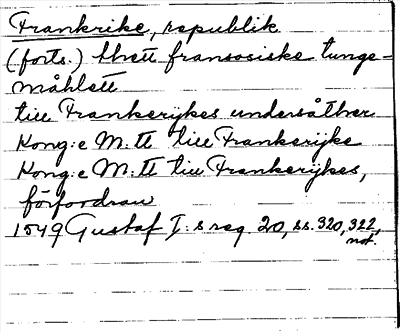 Frankrike, republik
(forts.) thett fransosiske tunge-
måhlett
till Frankerijkes undersåther
Kong:e M:tt till Frankerijke
Kong:e M:tt till Frankerijkes,
förfordran
1549 Gustaf I:s reg. 20, ss. 320, 322,
not.